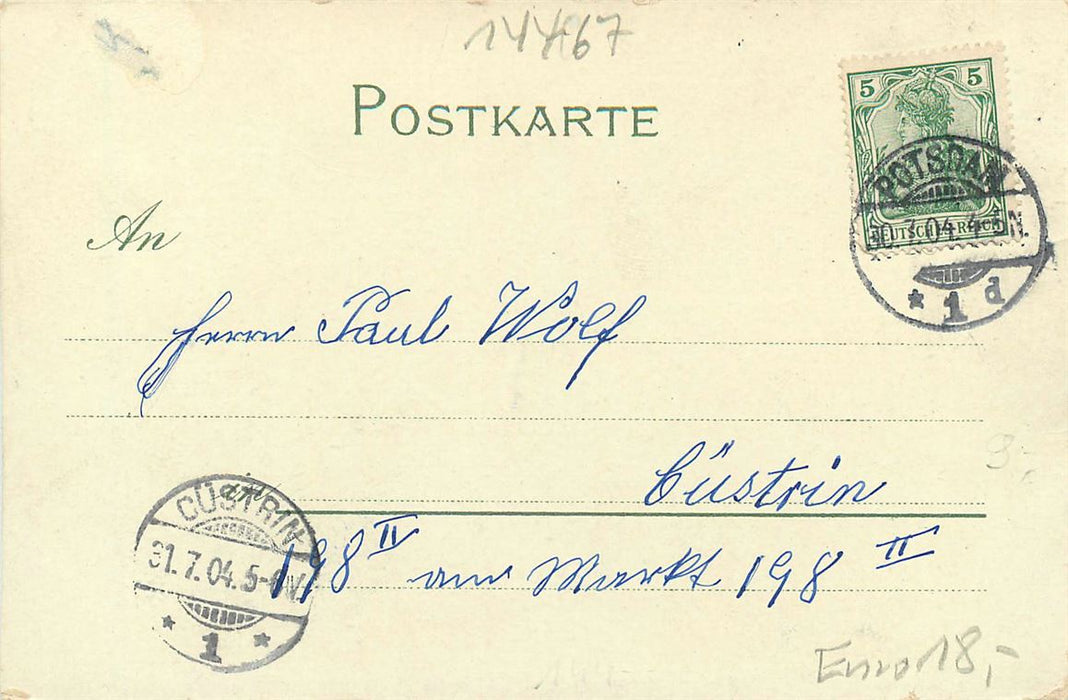 14467
POSTKARTE
5 5
DEUTSCHES REICH
POTSDAM
30.7.04. 4-5N.
* 1 d
An
Herrn Paul Wolf
Cüstrin
in
198 II am Markt 198 II
CÜSTRIN
31.7.04. 5-6V.
* 1 *
3,-
18,-